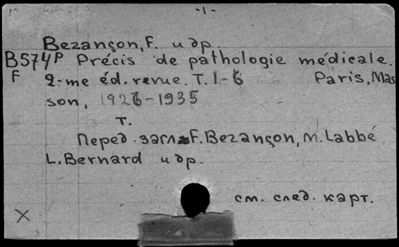 - 1 -
Bezançon, F. и др.
B574p Précis de pathologie médicale.
F 2-me éd. revue. T. 1-6 Paris, Mas
son, 1926-1935
т.
Перед загл. F. Bezançon, M. Labbé
L. Bernard и др.
см. след. карт.
X